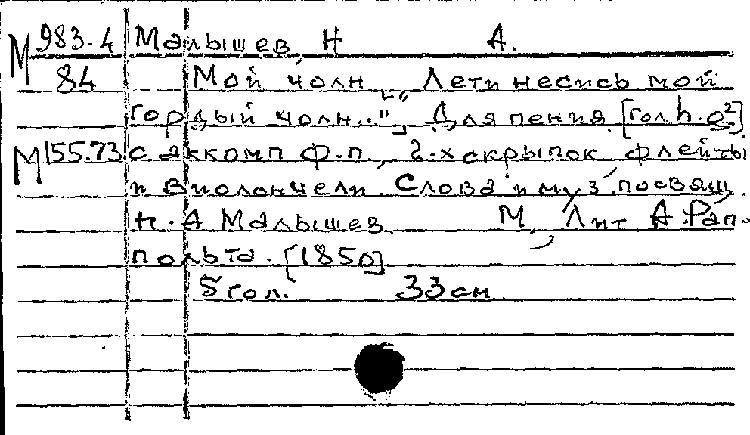 М 983.4 Малышев, Н А.
84 Мой чолн „Лети несись мой
гордый чолн.." Для пения [гол h.-g²]
М 155.73 с аккомп ф.п., 2-х скрыпок, флейты
и виолончели. Слова и муз, посвящ.
Н. А Малышев М, Лит А. Рап-
польта. [1850]
5 гол. 33 см